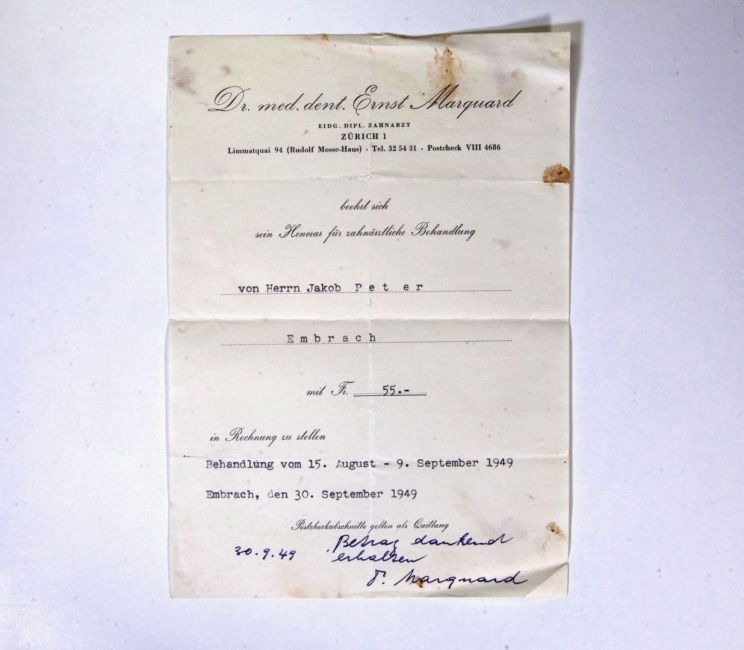 Dr. med. dent. Ernst Marquard
EIDG. DIPL. ZAHNARZT
ZÜRICH 1
Limmatquai 94 (Rudolf Mosse-Haus) - Tel. 32 54 31 - Postcheck VIII 4686
beehrt sich
sein Honorar für zahnärztliche Behandlung
von Herrn Jakob P e t e r
E m b r a c h
mit Fr. 55.-
in Rechnung zu stellen
Behandlung vom 15. August - 9. September 1949
Embrach, den 30. September 1949
Postcheckabschnitte gelten als Quittung
30.9.49 Betrag dankend
erhalten
Marquard